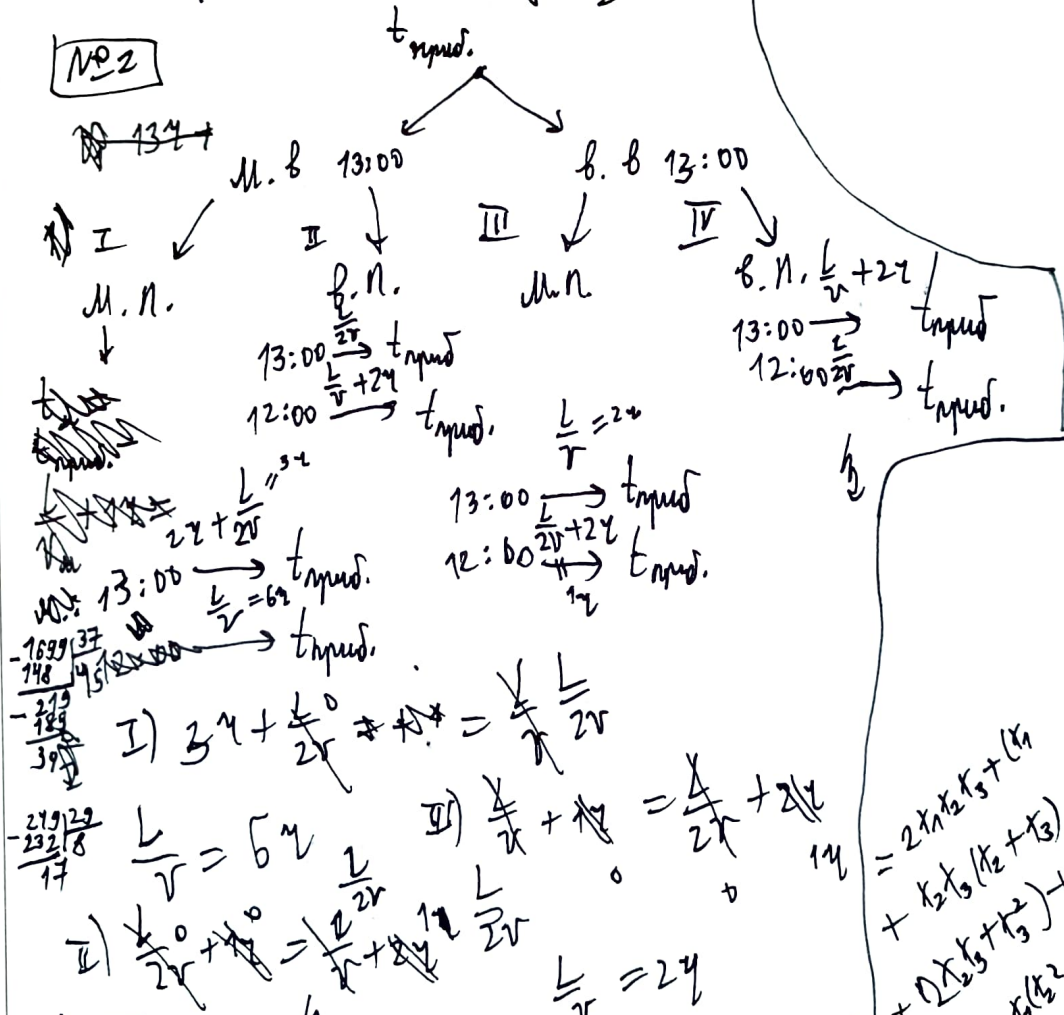 №2
t приб.
М. в 13:00
в. в 13:00
I
II
III
IV
М. п.
в. п.
М. п.
в. п. L/v + 2ч
13:00 L/2v → t приб
12:00 L/v + 2ч → t приб.
13:00 → t приб
12:00 L/2v → t приб.
L/v = 2ч
13:00 → t приб
12:00 L/2v + 2ч → t приб.
1ч
2ч + L/2v = 3ч
13:00 → t приб.
L/v = 6ч
→ t приб.
1699 | 37
148 | 45
219
189
I) 3ч + L/2v = L/v L/2v
249 | 29
232 | 8
17
L/v = 6ч
III) L/v + 1ч = L/2v + 2ч
0 0 1ч
L/2v
II) L/2v + 1ч = L/v + 2ч 1ч L/2v
L/v = 2ч
= 2x₁x₂x₃ + (x₁
+ x₂x₃(x₂ + x₃)